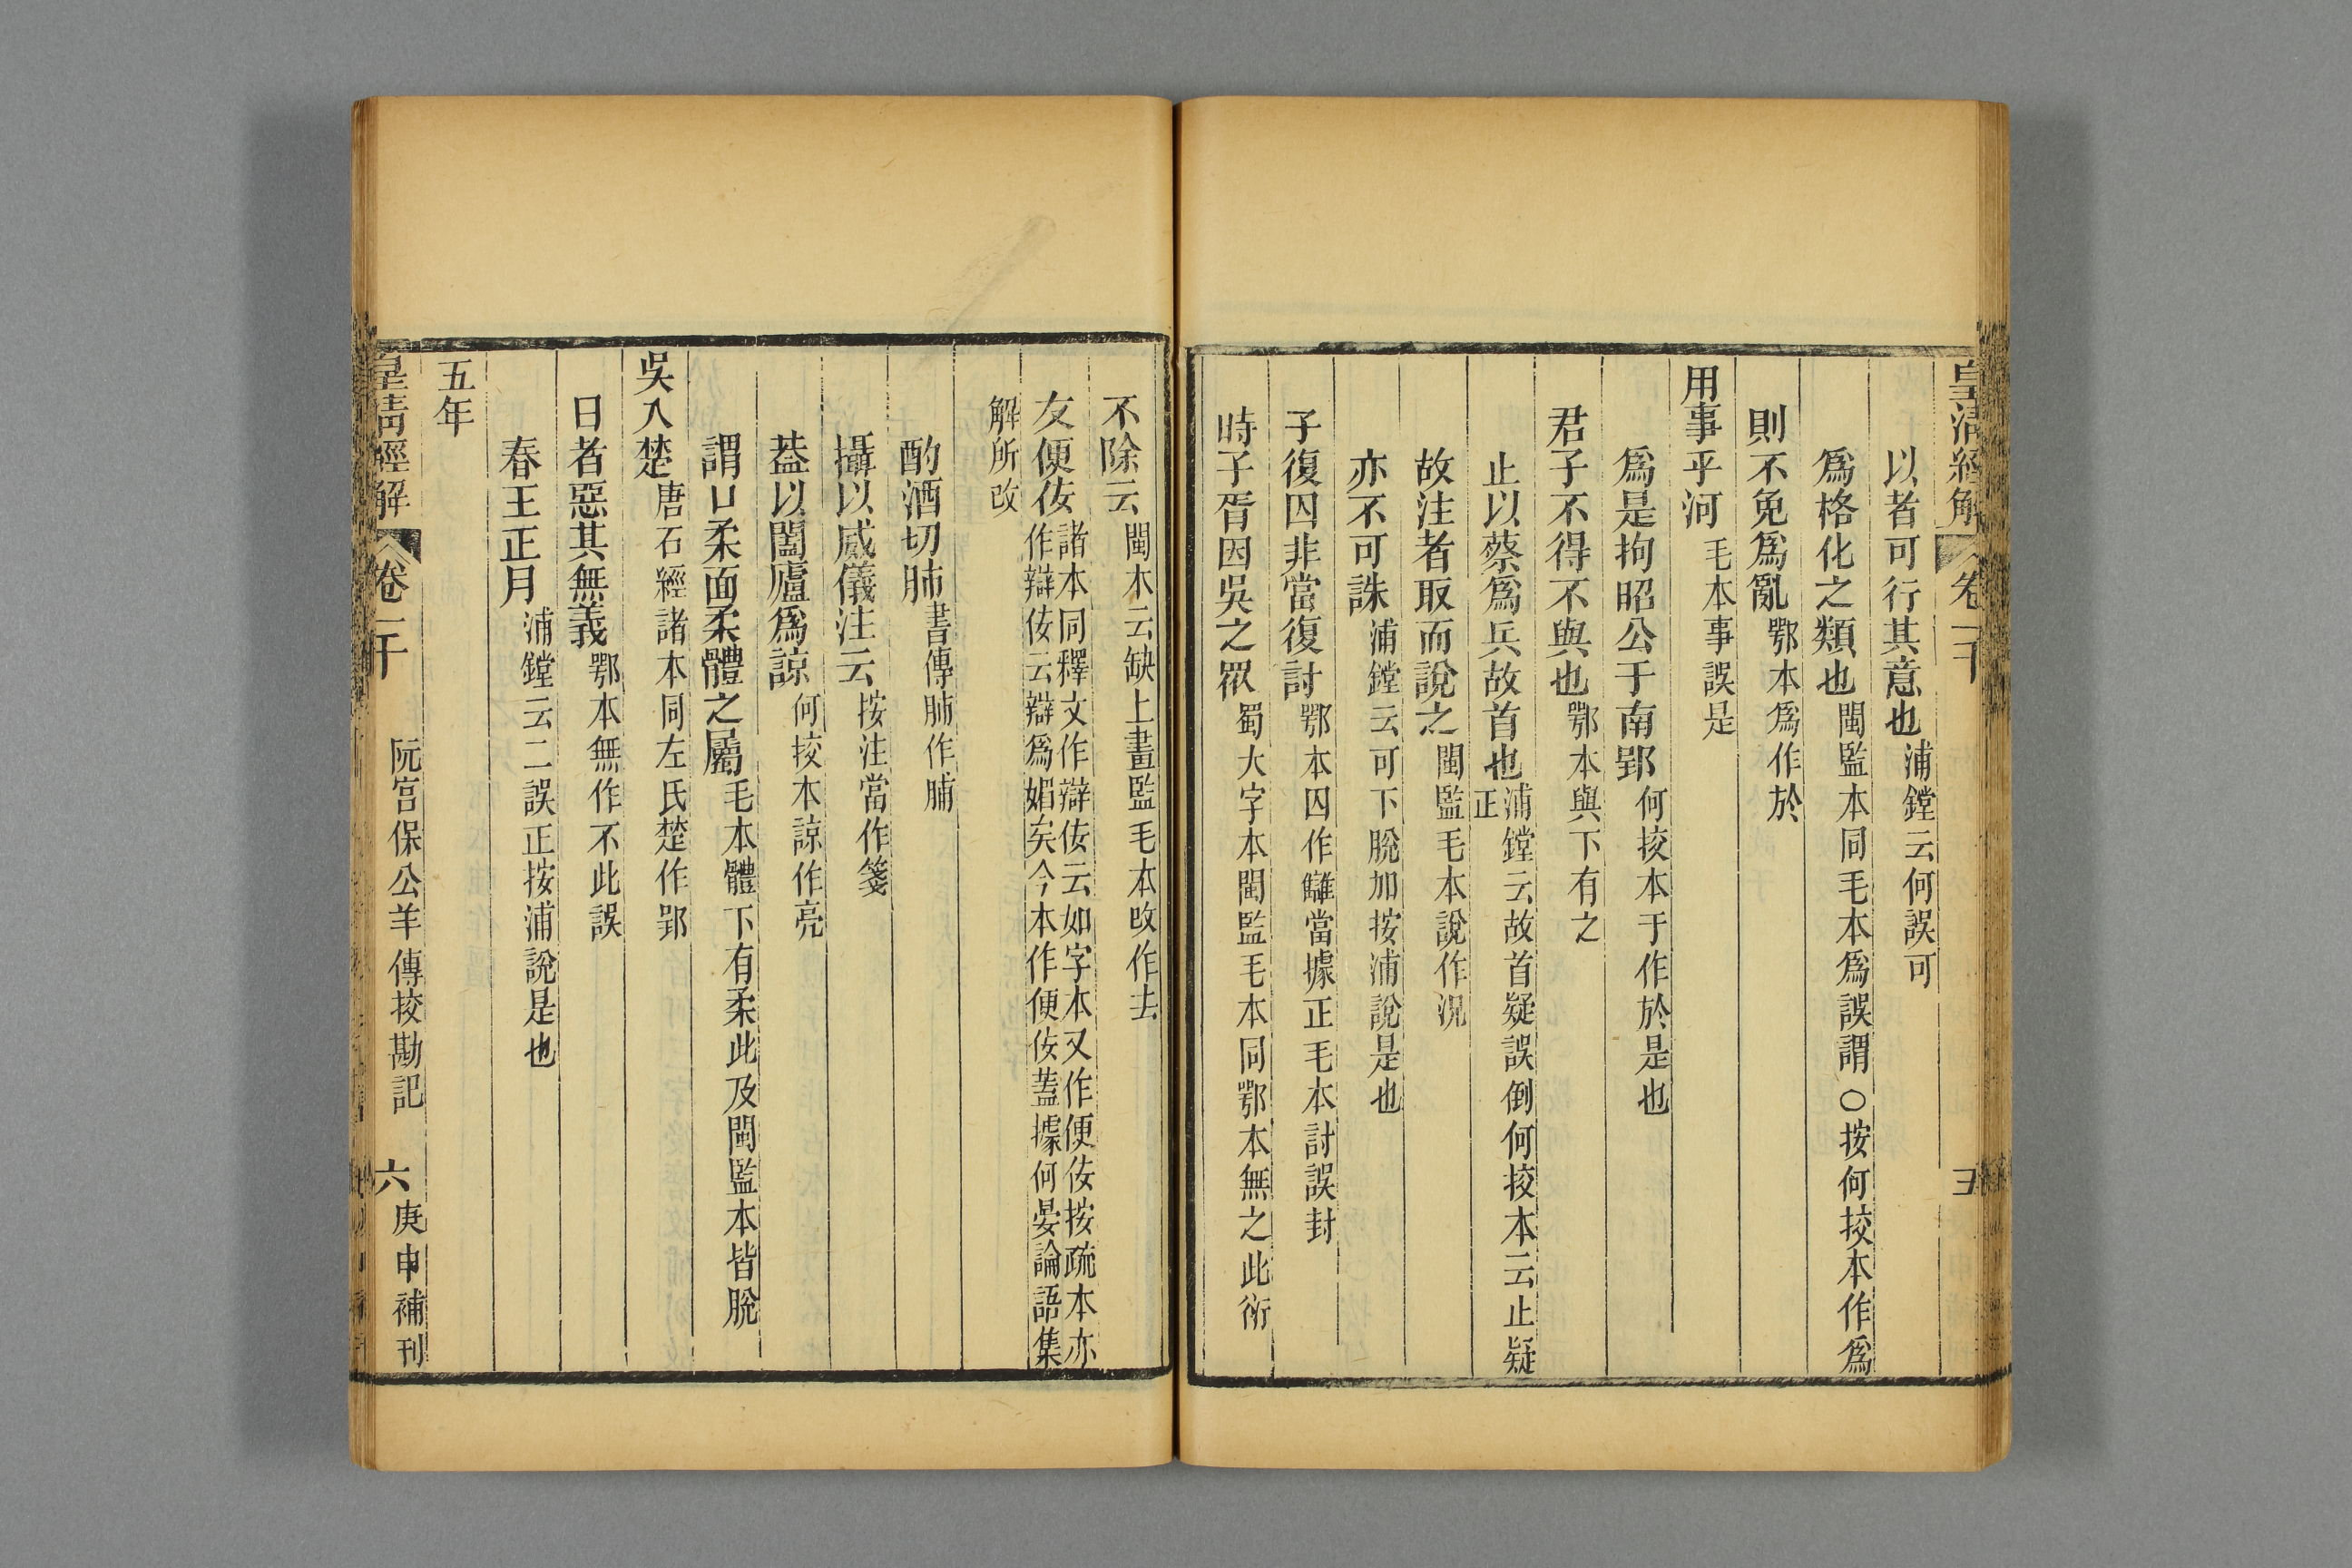 皇清經解 卷一千 五
以者可行其意也浦鏜云何誤可
爲格化之類也閩監本同毛本爲誤謂○按何挍本作爲
則不免爲亂鄂本爲作於
用事乎河毛本事誤是
爲是拘昭公于南郢何挍本于作於是也
君子不得不與也鄂本與下有之
止以蔡爲兵故首也浦鏜云故首疑誤倒何挍本云止疑正
故注者取而說之閩監毛本說作况
亦不可誅浦鏜云可下脫加按浦說是也
子復囚非當復討鄂本囚作讎當據正毛本討誤封
時子胥因吳之眾蜀大字本閩監毛本同鄂本無之此衍
不除云閩本云缺上畫監毛本改作去
友便佞諸本同釋文作辯佞云如字本又作便佞按疏本亦作辯佞云辯爲媚矣今本作便佞蓋據何晏論語集
解所改
酌酒切肺書傳肺作脯
攝以威儀注云按注當作箋
葢以闔廬爲諒何挍本諒作亮
謂口柔面柔體之屬毛本體下有柔此及閩監本皆脫
吳入楚唐石經諸本同左氏楚作郢
日者惡其無義鄂本無作不此誤
春王正月浦鏜云二誤正按浦說是也
五年
皇清經解 卷一千 阮宮保公羊傳挍勘記 六 庚申補刊